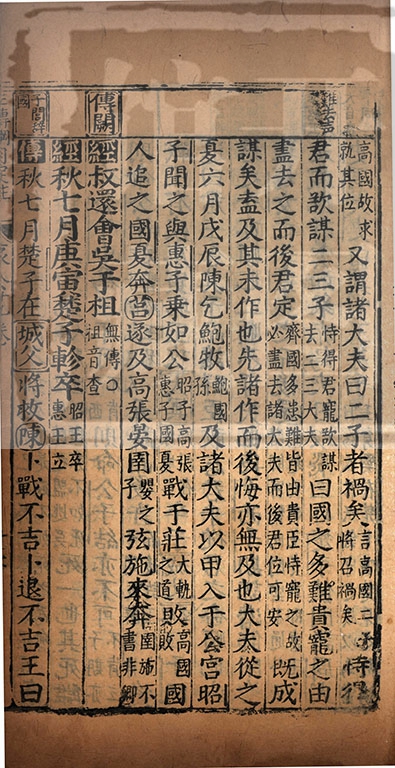 難去聲
傳闕
子閭辭國
高國故求就其位又謂諸大夫曰二子者禍矣言高國二子將召禍矣恃得
君而欲謀二三子恃得君寵欲謀去二三大夫曰國之多難貴寵之由
盡去之而後君定齊國多患難皆由貴臣恃寵之故必盡去諸大夫而後君位可安既成
謀矣盍及其未作也先諸作而後悔亦無及也大夫從之
夏六月戊辰陳乞鮑牧鮑國孫及諸大夫以甲入于公宮昭
子聞之與惠子乘如公昭子高張惠子國夏戰于莊大軌敗高國敗國
人追之國夏奔莒遂及高張晏圉嬰之子弦施來奔圉施不書非卿
經叔還會吳于柤無傳○柤音查
經秋七月庚寅楚子軫卒昭王卒惠王立
傳秋七月楚子在城父將救陳卜戰不吉卜退不吉王曰